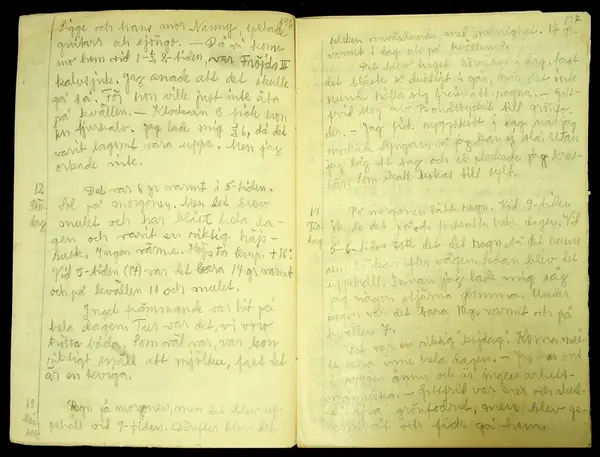 Sigge och hans mor Nanny, spelade
guitarr och sjöngo. — Då vi kom-
mo hem vid 1-½ 2-tiden, var Fröjda II
kalvsjuk. Jag anade att det skulle
gå så. Föj hon ville just inte äta
på kvällen. — Klockan 3 fick hon
en tjurkalv. Jag lade mig ½6, då det
varit lagomt vara uppe. Men jag
orkade inte.
12
Sön-
dag
Det var 6 gr varmt i 5-tiden.
Sol på morgonen. Men det blev
mulet och har blåst hela da-
gen och varit en riktig höj-
husk. Ingen värme. Högsta temp. + 16°.
Vid 5-tiden (17) var det bara 14 gr varmt
och på kvällen 10 och mulet.
Inget främmande var hit på
hela dagen. Tur var det, vi voro
trötta båda. Som väl var, var kon
riktigt snäll att mjölka, fast det
är en kviga.
13
Mån-
dag
Regn på morgonen, men det blev up-
pehåll vid 9-tiden. Därefter blev det
137
solsken omväxlande med molnighet. 17 gr.
varmt i dag, på kvällen
Det blev inget höväder i dag, fast
det blåste så duktigt i går, men det inte
kunde hålla sig ifrån att regna. — Gott-
frid slog av till grönfo-
der. — Jag fick ryggskott i dag när jag
så jag kan ej stå. Utan
jag låg ett tag och så plockade jag krus-
bär, som skall kokas till sylt.
14
Tis-
dag
På morgonen vått regn. Vid 9-tiden
det då och fortsatte hela dagen. Vid
5-6-tiden det regn så det
efter vägen. Sedan blev det
uppehåll. Innan jag lade mig såg
jag någon stjärna glimma. Under
dagen var det bara 10 gr varmt och på
kvällen 7.
Det var en riktig "
vara inne hela dagen. — Jag har ont
i ryggen ännu och är ingen arbets-
människa. — Gottfrid var över och skul-
le köra grönfoder, men blev ge-
nomvåt och fick gå hem.